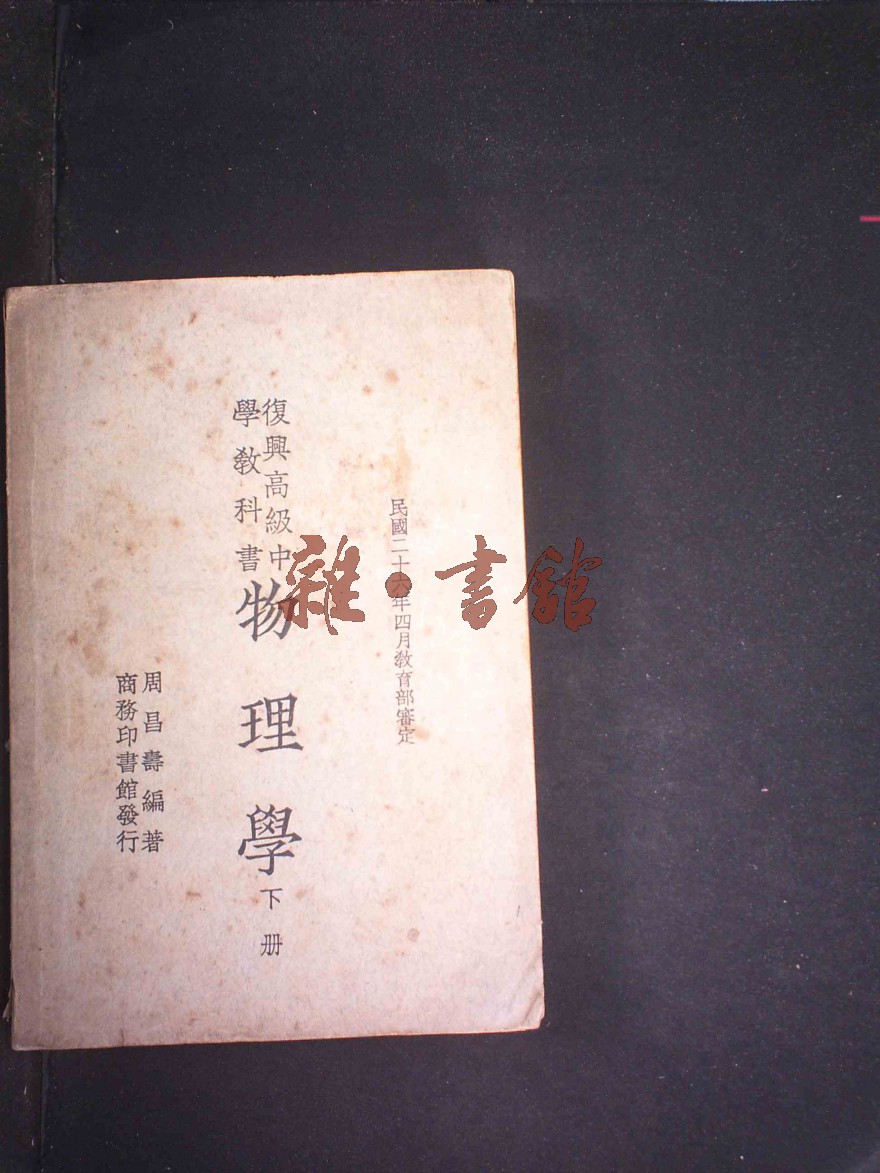 民國二十六年四月教育部審定
復興高級中
學教科書
物理學
下册
周昌壽編著
商務印書館發行
雜·書館